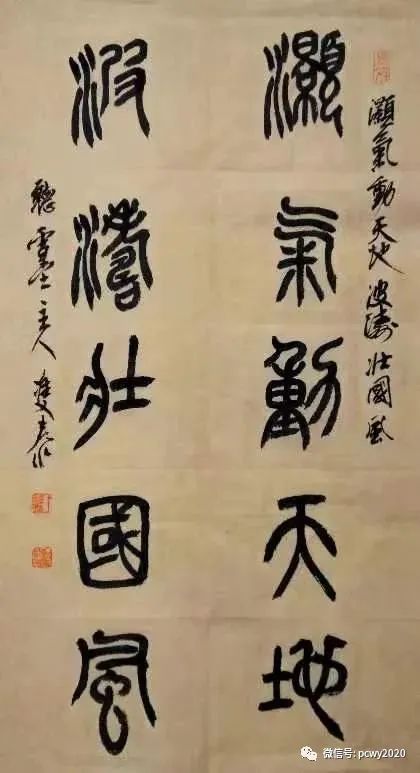 灝氣動天地波濤壯國風
灝氣動天地
波濤壯國風
聽雲主人
微信号: pcwy2020